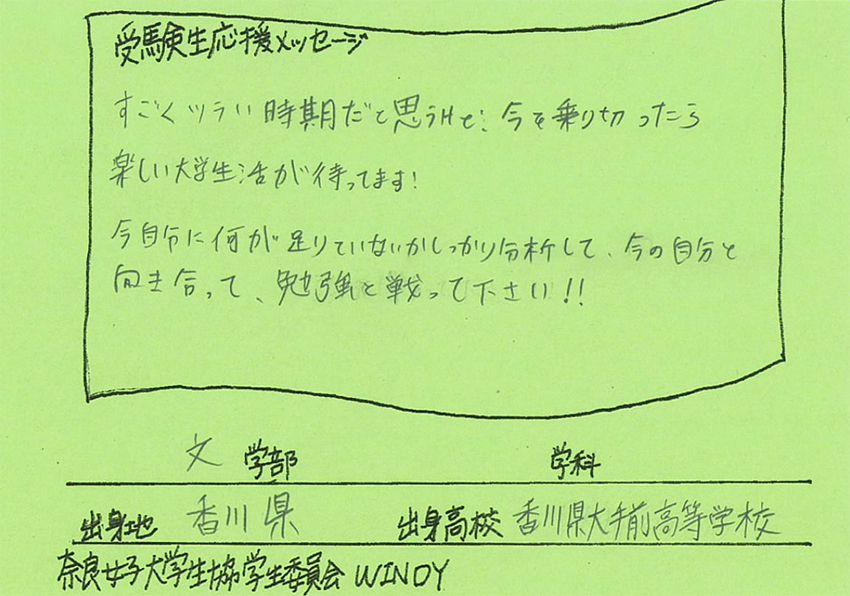 受験生応援メッセージ
すごくツラい時期だと思うけど、今を乗り切ったら
楽しい大学生活が待ってます!
今自分に何が足りていないかしっかり分析して、今の自分と
向き合って、勉強と戦って下さい!!
文 学部 学科
出身地 香川県 出身高校 香川県大手前高等学校
奈良女子大学生協学生委員会 WINDY